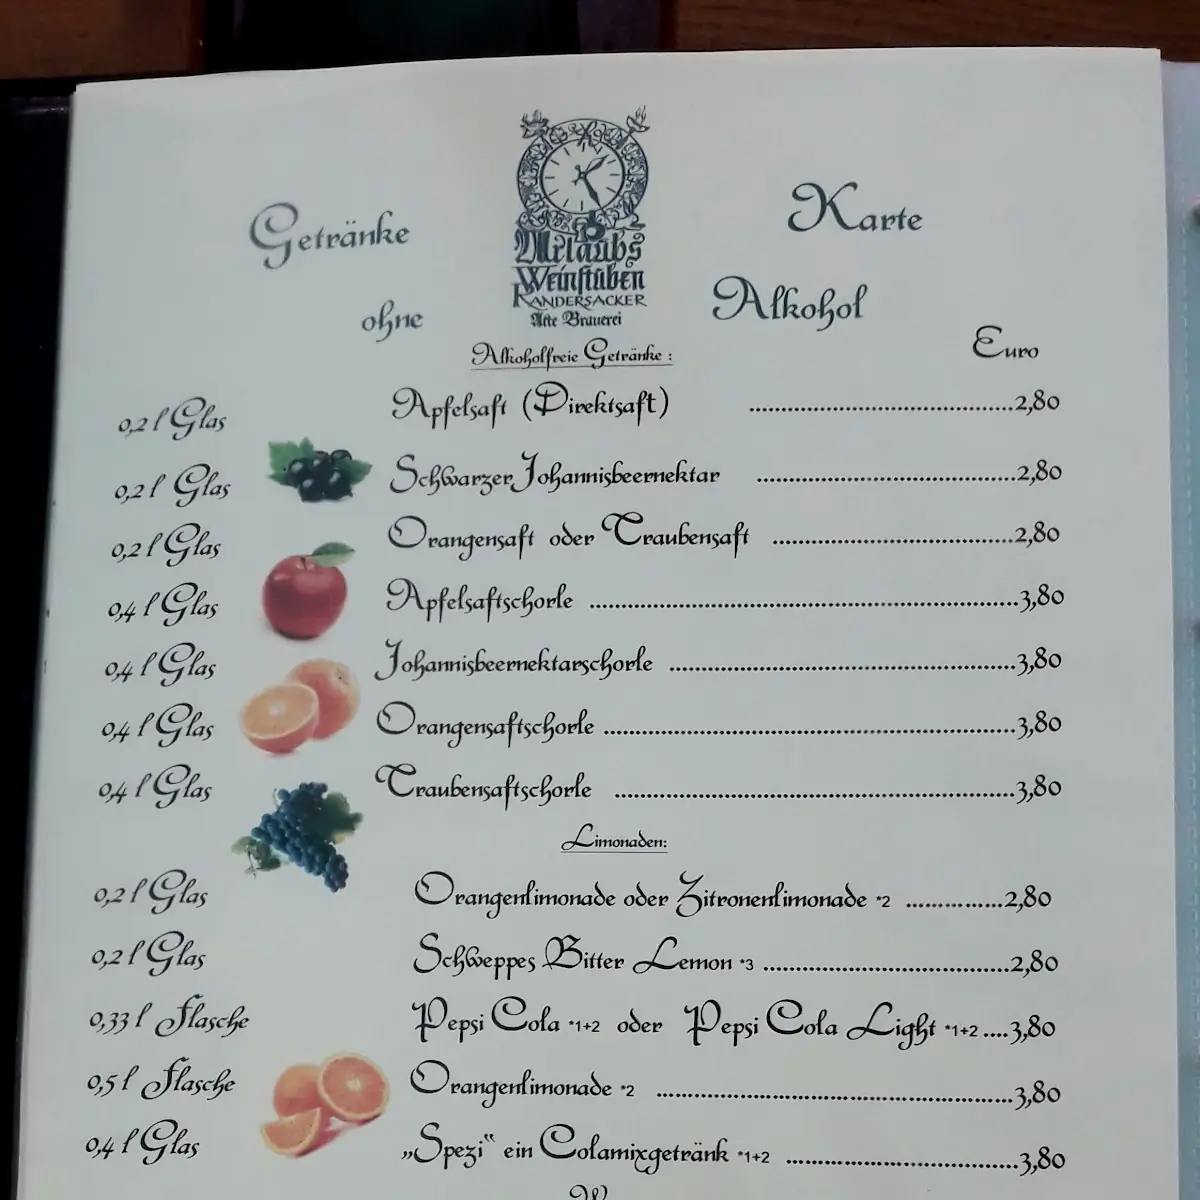 Getränke Karte
Urlaubs
Weinstuben
RANDERSACKER
Alte Brauerei
ohne Alkohol
Alkoholfreie Getränke :
Euro
0,2 l Glas Apfelsaft (Direktsaft) ..............................2,80
0,2 l Glas Schwarzer Johannisbeernektar ..............................2,80
0,2 l Glas Orangensaft oder Traubensaft ..............................2,80
0,4 l Glas Apfelsaftschorle ..............................3,80
0,4 l Glas Johannisbeernektarschorle ..............................3,80
0,4 l Glas Orangensaftschorle ..............................3,80
0,4 l Glas Traubensaftschorle ..............................3,80
Limonaden:
0,2 l Glas Orangenlimonade oder Zitronenlimonade *2 ...............2,80
0,2 l Glas Schweppes Bitter Lemon *3 ..............................2,80
0,33 l Flasche Pepsi Cola *1+2 oder Pepsi Cola Light *1+2 ....3,80
0,5 l Flasche Orangenlimonade *2 ..............................3,80
0,4 l Glas „Spezi“ ein Colamixgetränk *1+2 ..............................3,80